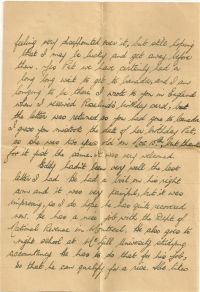 feeling very disappointed over it, but still hoping
that I may be lucky and get away before
then. Yes Pat we have certainly had a
long long wait to get to Canada, and I am
longing to be there. I wrote to you in England
when I received Rosalind's birthday card, but
the letter was returned so you had gone to Canada
I gave you mistook the date of his birthday Pat,
as she was two years old on Nov 15th, but thanks
for it just the same. It was very welcomed.
Eddy hadn't been very well the last
letter I had. He had a boil on his right
arm and it was very painful, but it was
improving, so I do hope he has quite recovered
now. He has a nice job with the Dept of
National Revenue in Montreal. He also goes to
night school at McGill University studying
accountancy. He has to do that for his job,
so that he can qualify for a rise. She likes